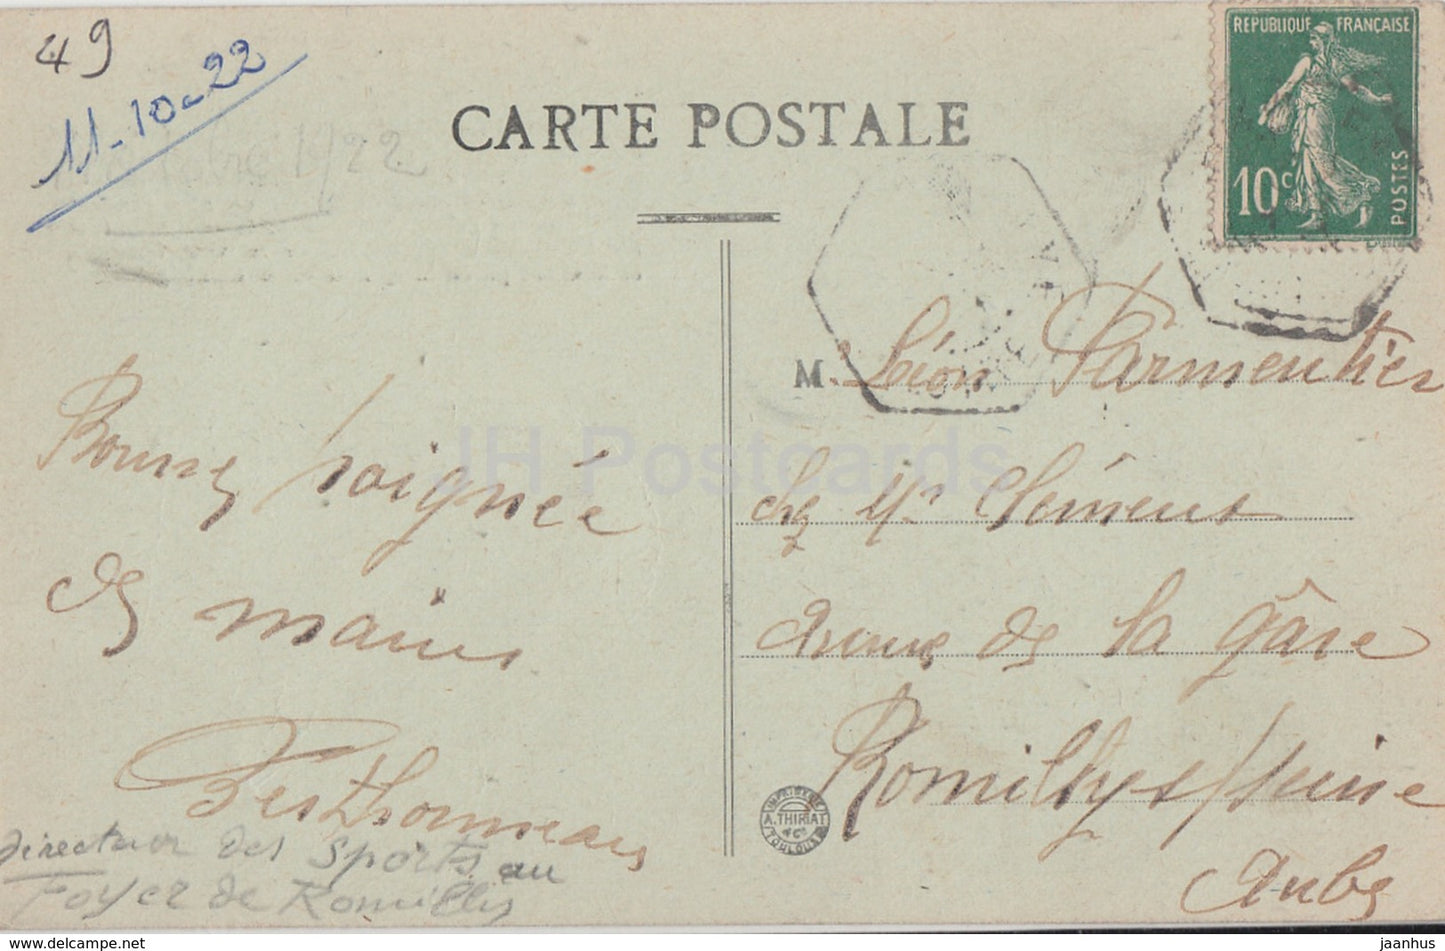 49
11-10-22
Octobre 1922
CARTE POSTALE
REPUBLIQUE FRANÇAISE
10c
POSTES
M. Léon Parmentier
chz Mr Clément
avenue de la gâre
Romilly s/ seine
Aube
Bonne poignée
de mains
Berthonneau
directeur des Sports au
Foyer de Romilly
IMPRIMERIE
A. THIRIAT
& Cie
TOULOUSE
JH Postcards
jaanhus - https://www.jaanhus.com